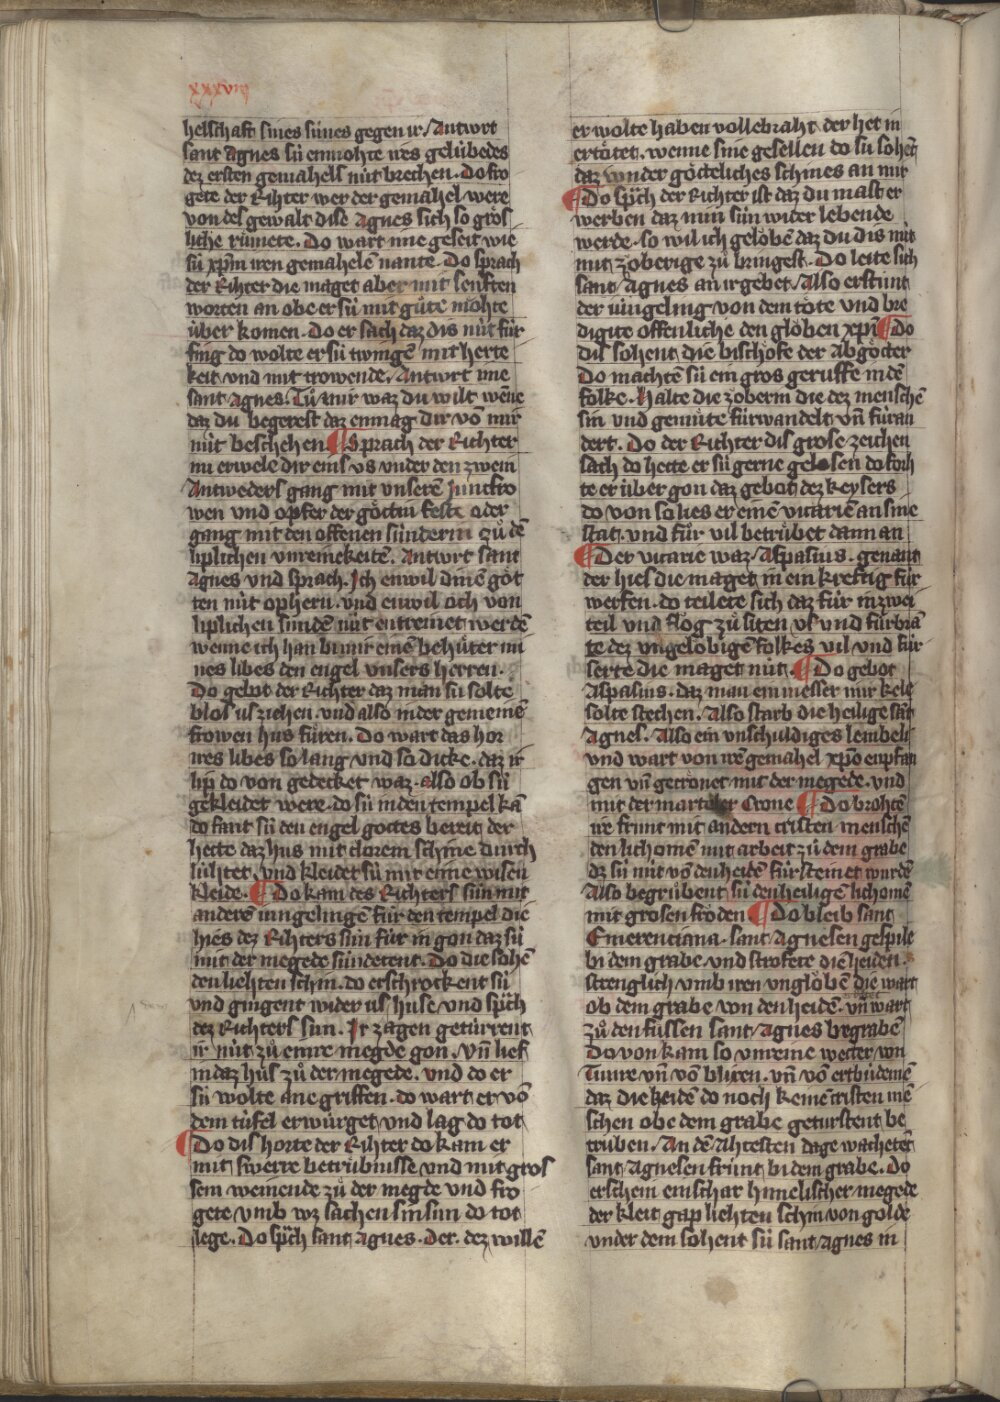 xxxviij
helschaft sines sunes gegen ir. Antwrt
sant Agnes sü enmohte ires gelübedes
dez ersten gemahels nüt brechen. Do fro
gete der Rihter wer der gemahel were
von des gewalt dise Agnes sich so grös
liche rümete. Do wart ime geseit wie
sü xp̄m iren gemahelē nante. Do sprach
der Rihter die maget aber mit senften
worten an obe er sü mit güte möhte
über komen. Do er sach daz dis nüt für
fing do wolte er sü twingē mit herte
keit vnd mit trowende. Antwrt ime
sant Agnes. Tů mir waz du wilt wēne
daz du begerest daz enmag dir vō mir
nüt beschehen ¶ Sprach der Richter
nu erwele dir eins vs vnder den zwein
Antweders gang mit vnserē Juncfro
wen vnd opfer der göttin feste oder
gang mit den offenen sünderin zů dē
liplichen vnreinekeitē. Antwrt sant
Agnes vnd sprach. Ich enwil dinē göt
ten nüt ophern. vnd enwil och von
liplichen sundē nüt entreinet werdē
wenne ich han bi mir einē behüter mi
nes libes den engel vnsers herren.
Do gebot der Richter daz man sü solte
blos us ziehen. vnd also in der gemeinē
frowen hus füren. Do wart das hor
ires libes so lang vnd so dicke. daz ir
lip do von gedecket waz. also ob sü
gekleidet were. do sü in den tempel kā
do fant sü den engel gottes bereit der
hette daz hus mit clorem schine durch
lühtet. vnd kleidet sü mit eime wisen
kleide. ¶ Do kam des Richters sun mit
anderē iungelingē für den tempel die
hies dez Rihters sun für in gon daz sü
mit der megede sündetent. Do die sohē
den liehten schin. do erschrockent sü
vnd gingent wider us huse vnd sp̄ch
dez Richters sun. Ir zagen getürrent
ir nüt zů einre megde gon. Vn̄ lief
in daz hus zů der megede. vnd do er
sü wolte ane griffen. do wart er vō
dem tüfel erwürget vnd lag do tot
¶ Do dis horte der Rihter do kam er
mit swerre betrübnisse vnd mit gros
sem weinende zů der megde vnd fro
gete vmb wz sachen sin sun do tot
lege. Do sp̄ch sant Agnes. Der. dez willē
er wolte haben vollebraht der het in
ertötet. wenne sine gesellen do sü sohēt
daz wnder götteliches schines an mir
¶ Do sp̄ch der Richter ist daz du maht er
werben daz min sün wider lebende
werde. so wil ich gelöben daz du dis nüt
mit zöberige zů bringest. Do leite sich
sant Agnes an ir gebet. Also erstunt
der iüngeling von dem tote vnd bre
digite offenliche den glöben xp̄i ¶ Do
dis sohent die bischöfe der Abgötter
Do machtē sü ein gros gerüffe in dē
folke. Halte die zöberin die dez menschē
sin vnd gemüte fürwandelt vn̄ füran
dert. Do der Richter dis grose zeichen
sach do hette er sü gerne gelosen do forh
te er über gon daz gebot dez keysers
do von so lies er einē vicariē an sine
stat. vnd für vil betrübet dannan
¶ Der vicarie waz Aspasius. genant
der hies die maget in ein kreftig für
werfen. do teilete sich daz für in zwei
teil vnd flog zů siten vs vnd fürbrā
te dez vngelöbigē folkes vil vnd für
serte die maget nüt. ¶ Do gebot
Aspasius. daz man ein messer mir kele
solte stechen. Also starb die heilige sāt
Agnes. Also ein vnschuldiges lembeli
vnd wart von irē gemahel xp̄o enpfan
gen vn̄ gecrönet mit der megede. vnd
mit der marteler Crone ¶ Do brohtē
ire frunt mit andern cristen menschē
den lichomē mit arbeit zů dem grabe
dz sü nüt vō den heidē fürsteinet wurdē
Also begrübent sü den heiligē lichomē
mit grosen fröden ¶ Do bleib sant
Emerenciana. sant Agnesen gespile
bi dem grabe. vnd strofete die heiden.
strenglich vmb iren vnglöben die wart
ob dem grabe von den heidē. vn̄ wart
zů den füssen sant Agnes begrabē
Do von kam so vnreine wetter von
Tunre vn̄ vō blixen. vn̄ vō ertbidemē
daz die heidē do noch keinē cristen mē
schen obe dem grabe geturstent be
trüben. An dē Ahtesten dage wachetēt
sant Agnesen frünt bi dem grabe. Do
erschein ein schar himelischer megede
der kleit gap liehten schin von golde
vnder dem sohent sü sant Agnes in